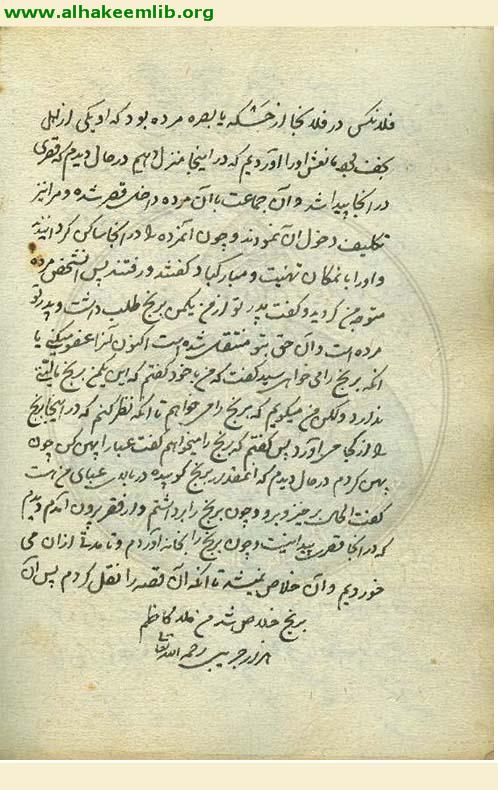 www.alhakeemlib.org
فلانکس در فلانجا از خشکه یا بصره مرده بود که او یکی از اهل
نجف بود ما نعش او را آوردیم که در اینجا منزل دهیم در حال دیدم که قصری
در آنجا پیدا شد و آن جماعت با آن مرده داخل قصر شده و مرا نیز
تکلیف دخول آن نمودند و چون آنمرده را در آنجا ساکن گردانیدند
و او را بانمکان تهنیت و مبارکباد گفتند و رفتند پس آنشخص مرده
متوجه من گردید و گفت پدر تو از من یکمن برنج طلب داشت و پدر تو
مرده است و آن حق بتو منتقل شده است اکنون آنرا عفو میکنی یا
آنکه برنج را می خواهی سید گفت که من با خود گفتم که این یکمن برنج مالیتی
ندارد و لکن من میگویم که برنج را می خواهم تا آنکه نظر کنم که در اینجا برنج
را از کجا می آورد پس گفتم که برنج را میخواهم گفت عبا را پهن کن چون
پهن کردم در حال دیدم که آنمقدار برنج کوبیده در میان عبای من است
گفت الحال برخیز و برو و چون برنج را برداشتم و از قصر بیرون آمدم دیدم
که در آنجا قصری پیدا نیست و چون برنج را بخانه آوردم و تا مدتی از آن می
خوردیم و آن خلاص نمیشد تا آنکه آن قصه را نقل کردم پس آن
برنج خلاص شد من ملا کاظم
هزار جریبی رحمه الله تعالی